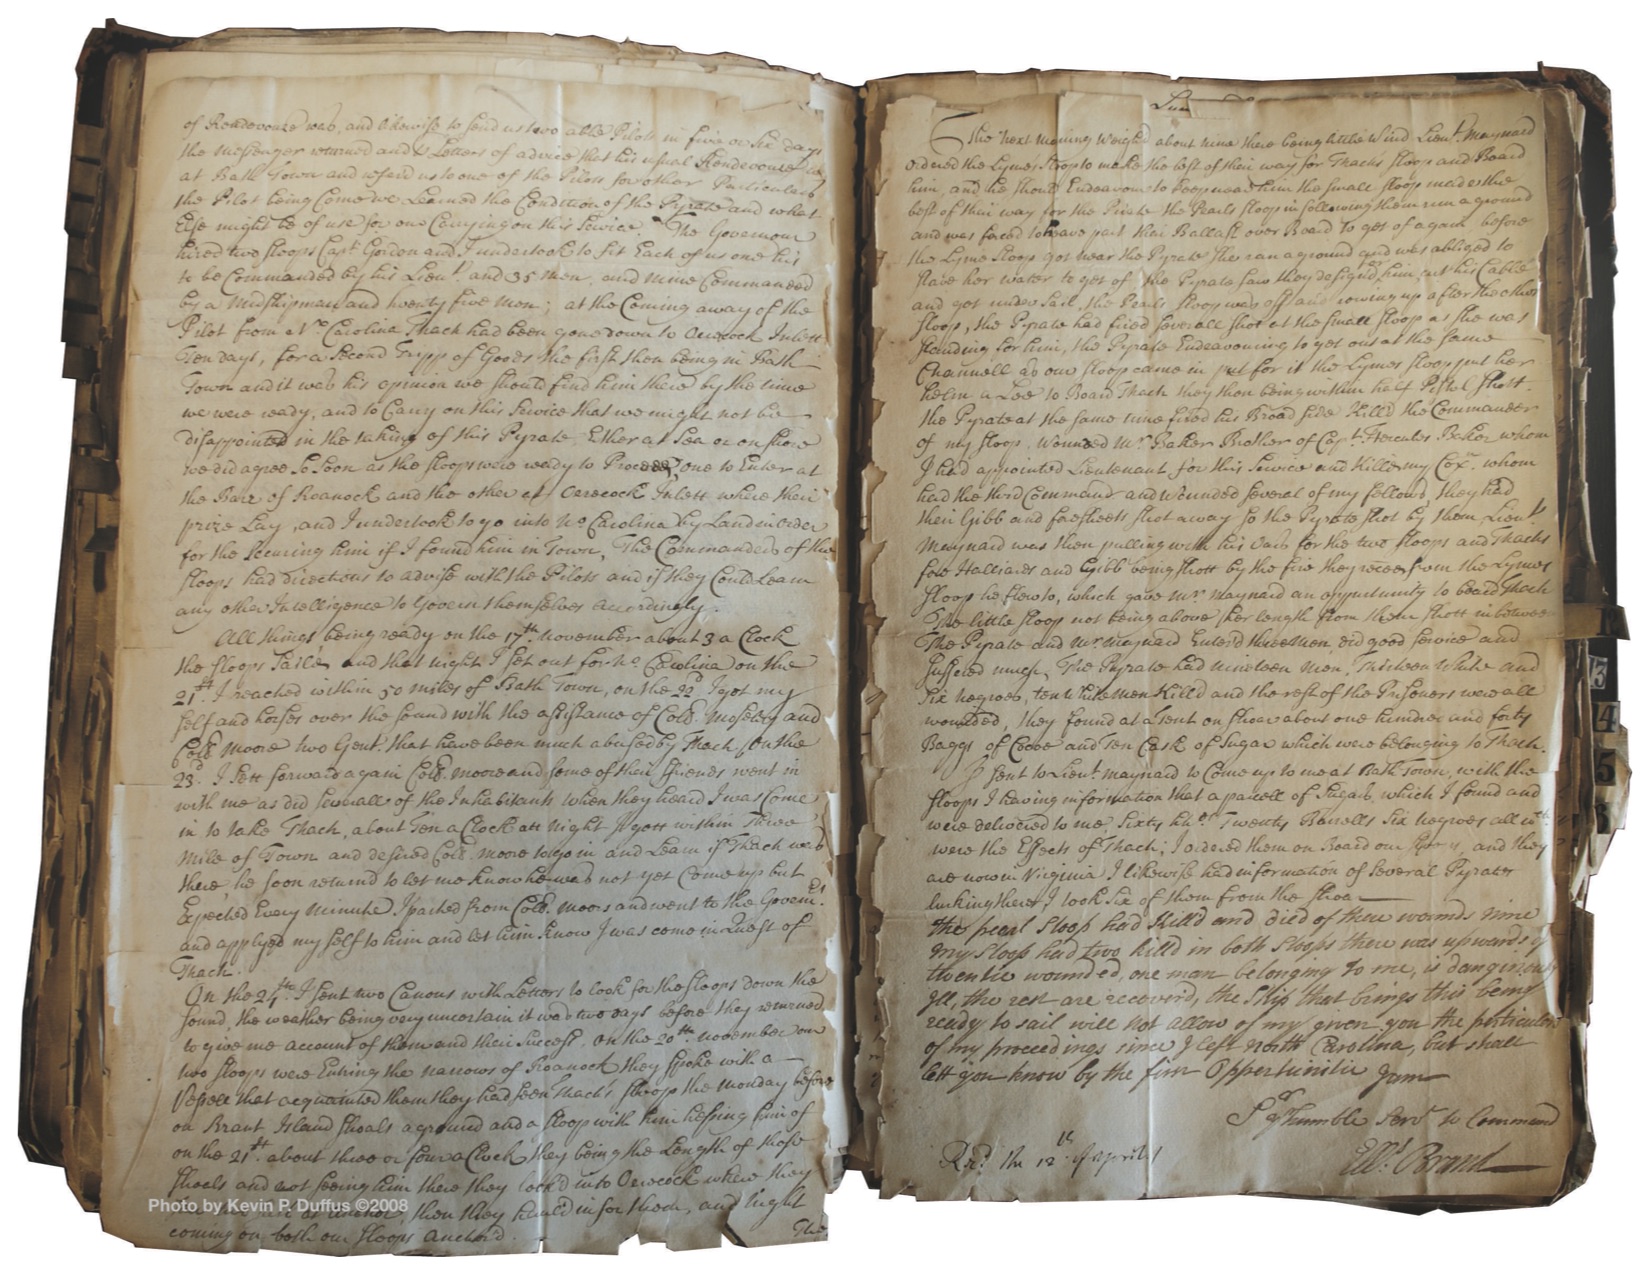 of Rendevouze was, and likewise to send us two able Pilots in five or Six days
the Messenger returned and Letters of advice that his usual Rendevouze
at Bath Town and us to one of the Pilots for other Particulars
the Pilot being Come we Learned the Condition of the Pyrate and what
Else might be of use for our Carrying on this Service. The Governour
hired two Sloops Capt. Gordon and I undertook to fit Each of us one his
to be Commanded by his Lieut. and 35 men, and mine Commanded
by a Midshipman and twenty five Men; at the Coming away of the
Pilot from No. Carolina Thach had been gone down to Inlett
Ten days, for a Second Tripp of Goods the first then being in Bath
Town and it was his opinion we should find him there by the time
we were ready, and to Carry on this Service that we might not be
disappointed in the taking of this Pyrate, Either at Sea or on Shore
we did agree So Soon as the Sloops were ready to Proceed one to Enter at
the Barr of Roanock and the other at Inlett where their
prize Lay, and I undertook to go into No. Carolina by Land in order
for the Securing him if I found him in Town, The Commanders of the
Sloops had directions to advise with the Pilots and if they Could Learn
any other Intelligence to Govern themselves accordingly.
All things being ready on the 17th. November about 3 a Clock
the Sloops Sail'd, and that night I Set out for No. Carolina on the
21st. I reached within 50 miles of Bath Town, on the 22d I got my
self and horses over the Sound with the assistance of Coll. Moseley and
Coll. Moore two Gent. that have been much abused by Thach. On the
23d. I Sett forward again Coll. Moore and some of their friends went in
with me as did severall of the Inhabitants when they heard I was Come
in to take Thach, about Ten a Clock att Night I gott within Three
Mile of Town and desired Coll. Moore to go in and Learn if Thach was
there he soon returnd to let me know he was not yet Come up but
Expected Every Minuite I parted from Coll. Moore and went to the Govern.
and applyed my self to him and let him know I was come in Quest of
Thach.
On the 24th. I sent two Canous with Letters to look for the Sloops down the
Sound, the weather being very uncertain it was two days before they returned
to give me account of them and their Success, on the 20th. November our
two Sloops were Entring the narrows of Roanock they spoke with a
Vessell that acquainted them they had seen Thach's Sloop the Monday before
on Brant Island Shoals aground and a Sloop with him helping him of
on the 21st. about three or four a Clock they being the Length of those
Shoals and not seeing him there they look'd into where they
then they haul'd in for them, and Night
coming on both our Sloops anchor'd.
The
The next Morning Weigh'd about nine there being little Wind Lieut. Maynard
ordered the Lymes Sloop to make the best of their way for Thachs Sloop and Board
him, and he should Endeavour to keep near him the small Sloop made the
best of their way for the Pirate the Pearls Sloop in following them run a ground
and was forced to heave part thair Ballast over Board to get of again before
the Lyme Sloop got near the Pyrate She ran a ground and was obliged to
Stave her water to get of, the Pyrate saw they design'd for him cut his Cable
and got under Sail, the Pearls Sloop was off and rowing up after the other
Sloop, the Pyrate had fired severall Shot at the small Sloop as she was
Standing for him, the Pyrate Endeavouring to get out at the same
Channell as our Sloop came in put for it the Lymes Sloop put her
helm a Lee to Board Thach they then being within half Pistol Shott.
the Pyrate at the same time fired his Broad side Killd the Commander
of my Sloop, Wounded Mr. Baker Brother of Capt. Hercules Baker whom
I had appointed Lieutenant for this Service and Killd my Coxn. whom
had the third Command and Wounded Several of my fellows, they had
their Gibb and foresheets Shot away so the Pyrate Shot by them, Lieut.
Maynard was then pulling with his Oars for the two Sloops and Thachs
fore Halliards and Gibb being Shott by the fire they from the Lymes
Sloop he flew to, which gave Mr. Maynard an oppurtunity to board Thach
The little Sloop not being above her length from them Shott in between
The Pyrate and Mr. Maynard Enter'd three Men, did good Service and
Suffered much, The Pyrate had nineteen Men, Thirteen White and
Six Negroes, ten White Men Killd and the rest of the Prisoners were all
wounded, they found at a Tent on Shoar about one hundred and forty
Baggs of Cocoe and Ten Cask of Sugar which were belonging to Thach.
I sent to Lieut. Maynard to Come up to me at Bath Town, with the
Sloops I having information that a parcell of Sugars, which I found and
were delivered to me, Sixty Twenty Barrells Six negroes all
were the Effects of Thach; I ordered them on Board our and they
are now in Virginia I likewise had information of Several Pyrates
lurking there, I took Six of them from the Shoar
the pearl Sloop had Killd and died of there wounds nine
my Sloop had two killd in both Sloops there was upwards of
twentie wounded, one man belonging to me, is dangirously
Ill, the rest are recoverd, the Ship that brings this being
ready to sail will not allow of my given you the particulers
of my proceedings since I left north Carolina, but shall
lett you know by the first Oppertunitie
Humble Servt. to Command
Ellis Brand
the 12th of april
Photo by Kevin P. Duffus ©2008